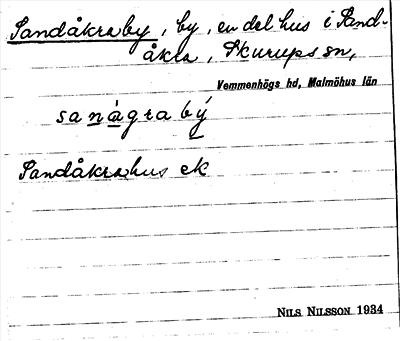 Sandåkraby, by, en del hus i Sand-
åkra, Skurups sn,
Vemmenhögs hd, Malmöhus län
sanågrabý
Sandåkrahus ek
NILS NILSSON 1934